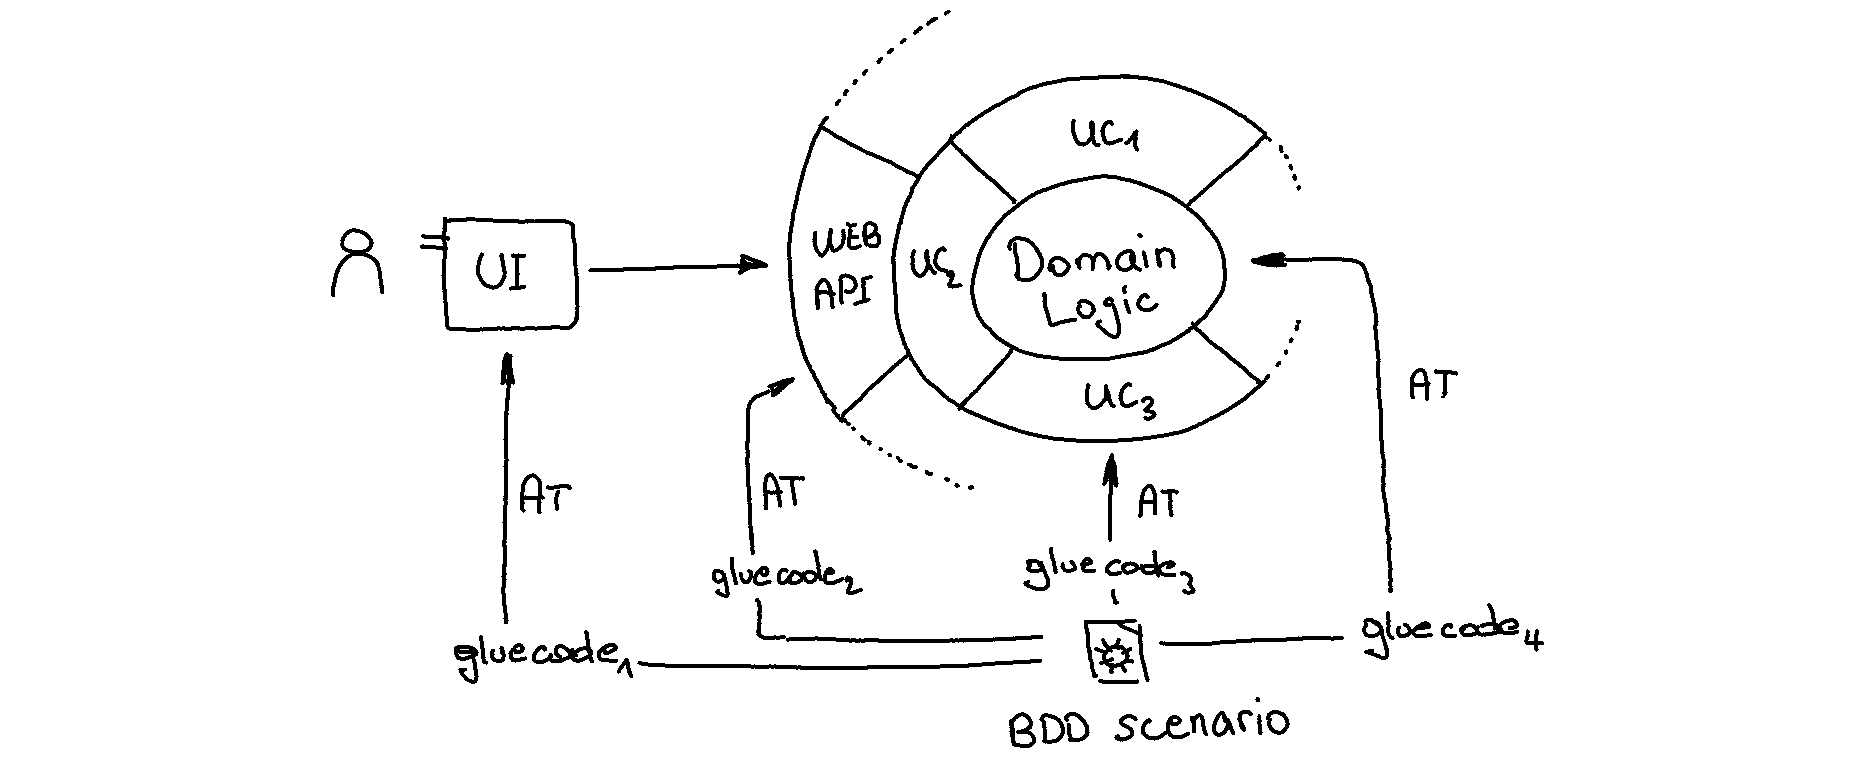 UC1
WEB
API
UC2
Domain
Logic
UI
UC3
AT
AT
AT
AT
gluecode1
gluecode2
gluecode3
gluecode4
BDD scenario